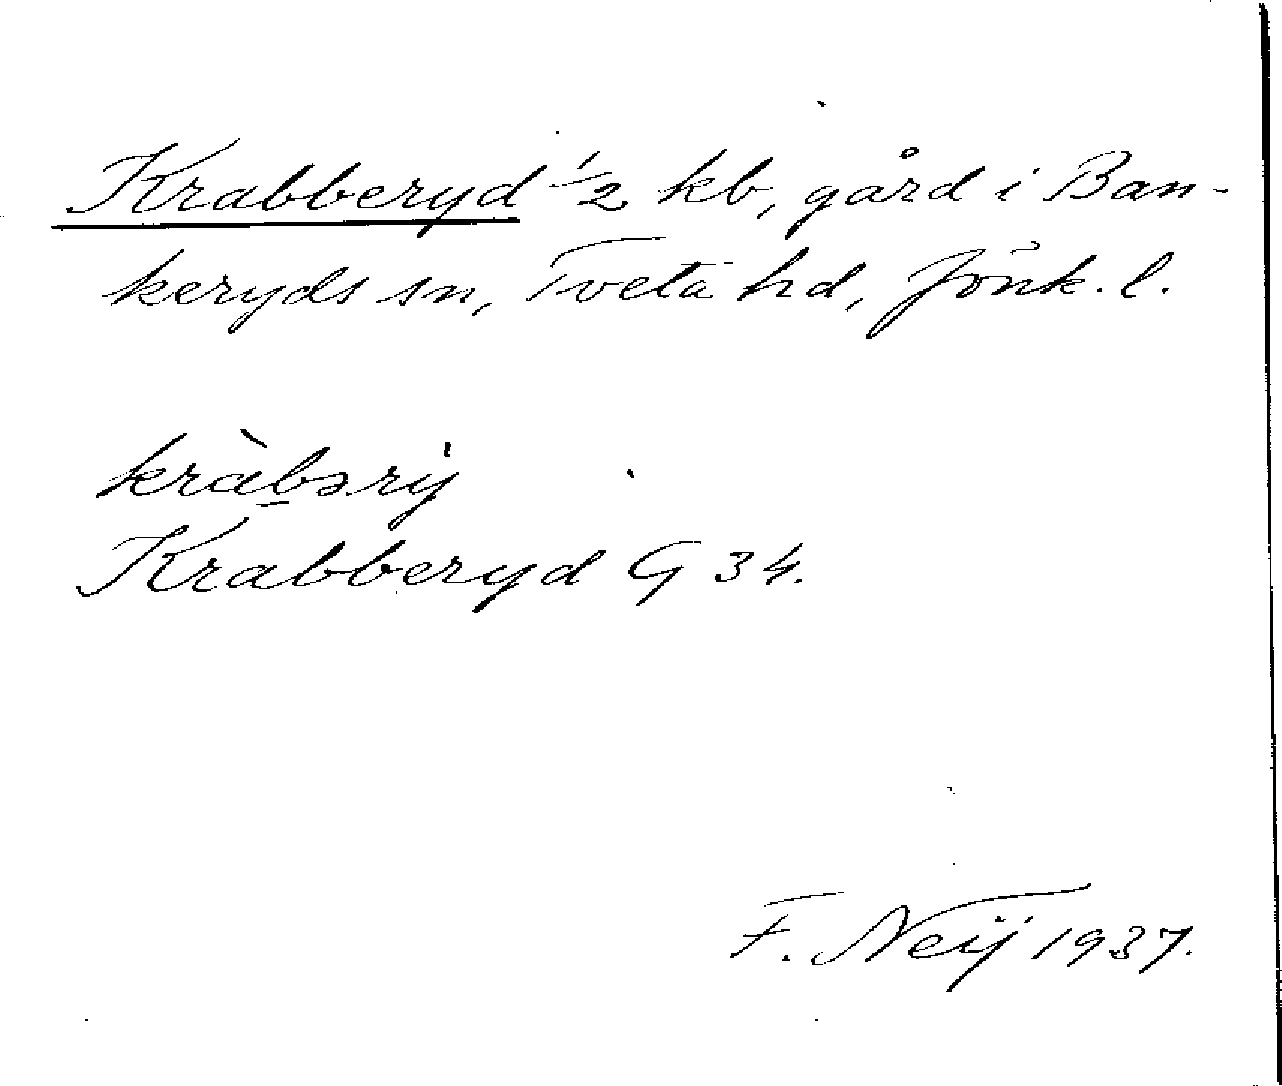 Krabberyd 1/2 kb, gård i Ban-
keryds sn, Tveta hd, Jönk. l.
kràb̲əry̍
Krabberyd G 34.
F. Neij 1937.